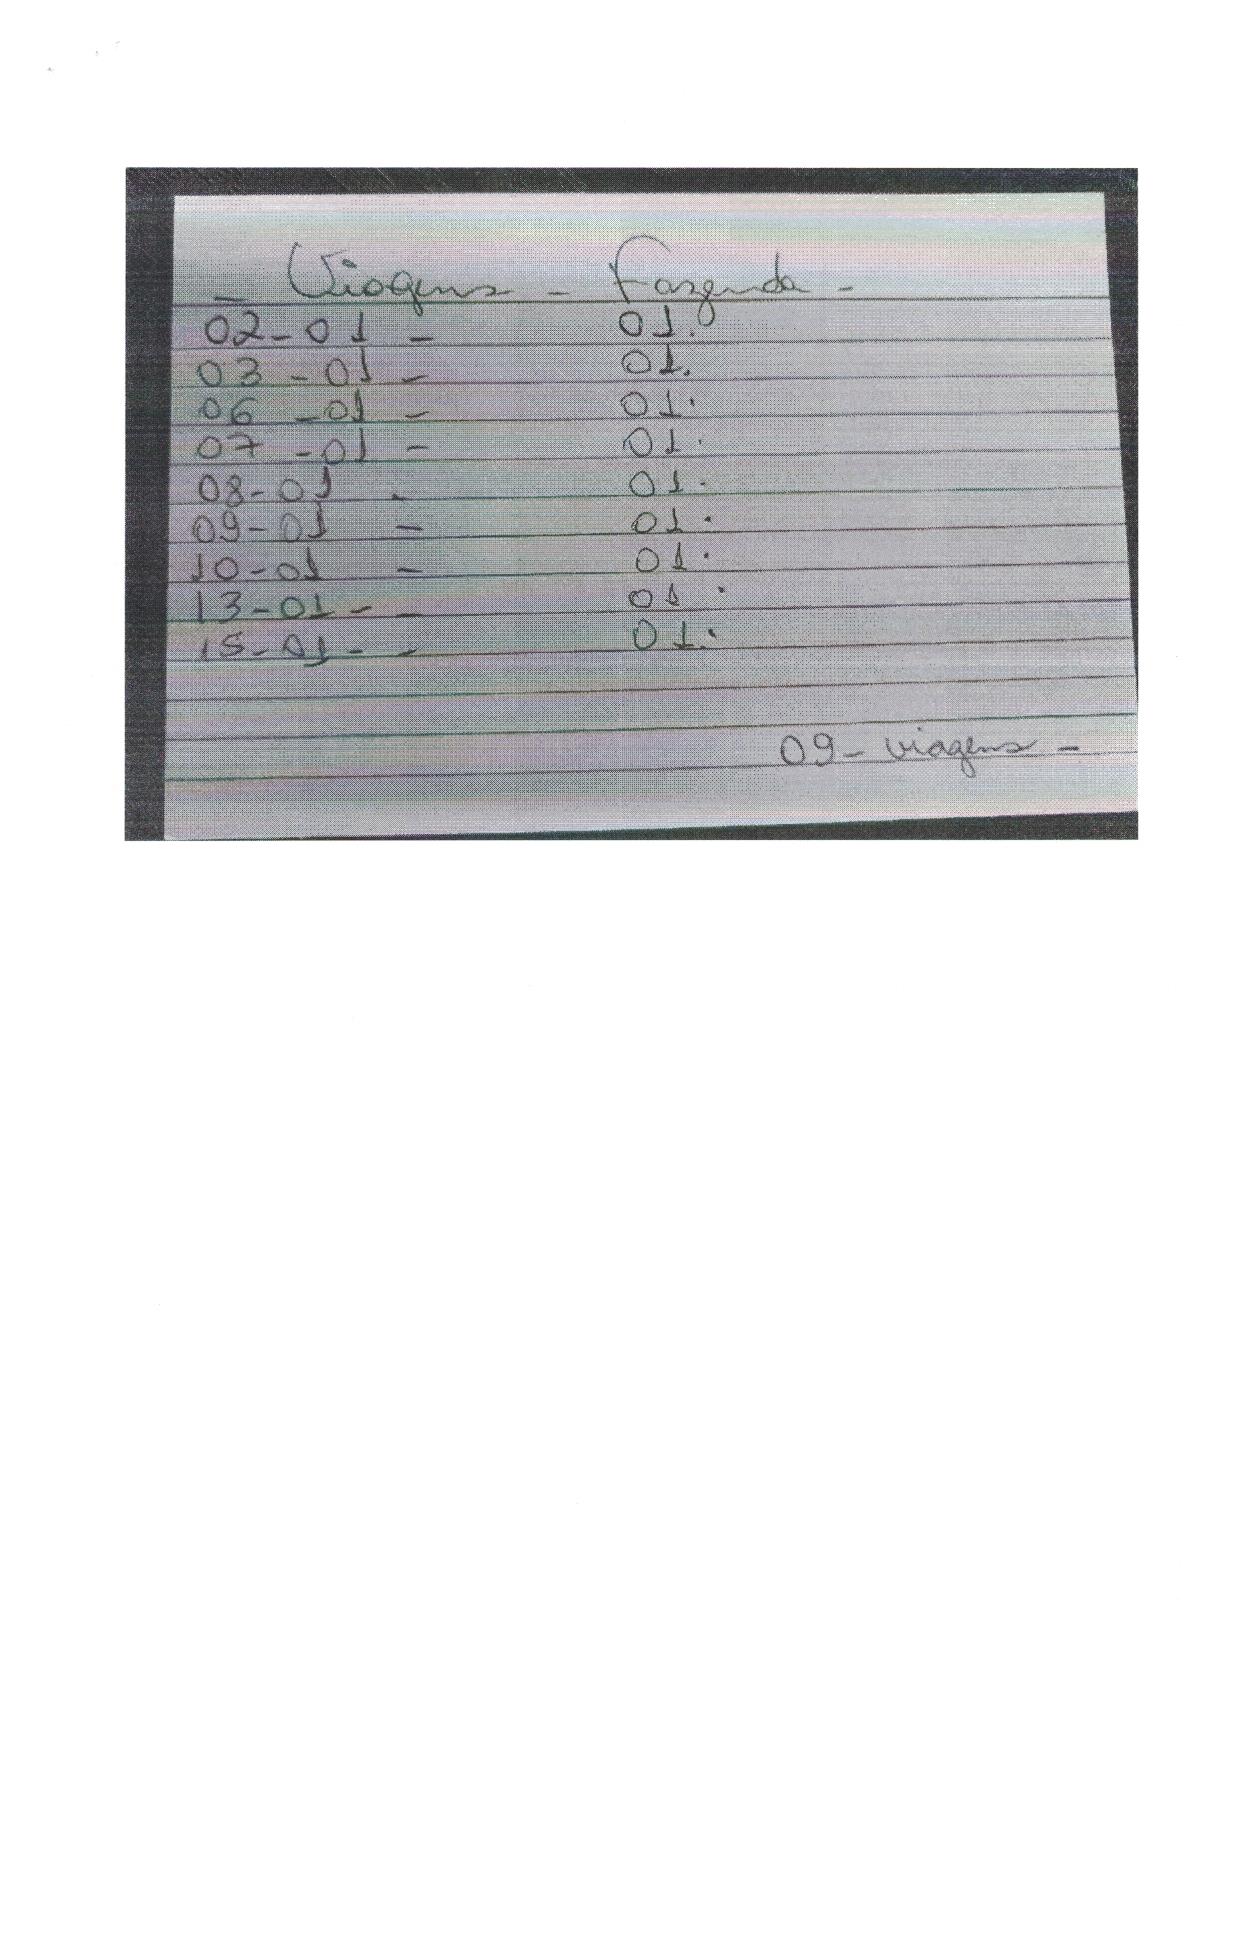 - Viagens - Fazenda -
02-01 - 01.
03-01 - 01.
06-01 - 01.
07-01 - 01.
08-01 - 01.
09-01 - 01.
10-01 - 01.
13-01 - - 01.
15-01 - - 01.
09- viagens -